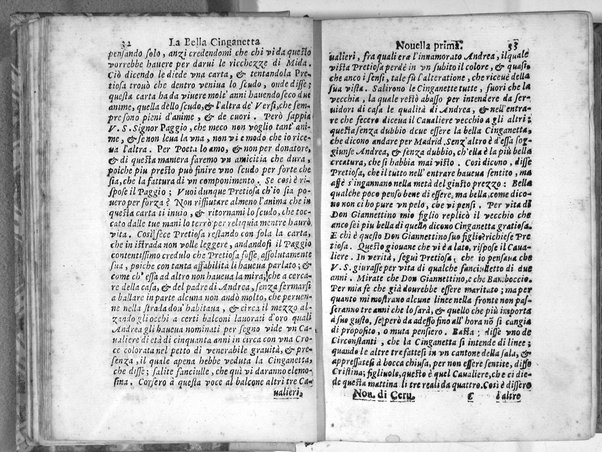 32 La Bella Cinganetta
pensando solo, anzi credendomi che chi vida questo
vorrebbe hauere per darui le ricchezze di Mida.
Ciò dicendo le diede vna carta, & tentandola Pre
tiosa trouò che dentro veniua lo scudo, onde disse
questa carta ha da viuere mol' anni hauendo seco due
anime, quella dello scudo, & l'altra de' Versi, che sem
pre sono pieni d'anime, & de cuori. Però sappia
V. S. Signor Paggio, che meco non voglio tant' ani
me, & se non leua la vna, non vi è modo che io rice-
ua l'altra. Per Poeta lo amo, & non per donatore,
& di questa maniera faremo vn amicitia che dura,
polche piu presto può fuire vno scudo, per forte che
sia, che la fattura di vn componimento. Se così è ri-
spose il Paggio; Vuoi dunque Pretiosa ch'io sia po-
uero per forza? Non rifiutare almeno l'anima che in
questa carta ti inuio, & ritornami lo scudo, che toc-
cato dalle tue mani lo terrò per reliquia mentre haurò
vita. Così fece Pretiosa restando con sola la carta,
che in istrada non volle leggere, andandosi il Paggio
contentissimo credulo che Pretiosa fosse assolutamente
sua, poiche con tanta affabilità li haueua parlato; &
come ch' essa ad altro non haueua mira, che a cerca-
re della casa, & del padre di Andrea, senza fermarsi
a ballare in parte alcuna non andò molto, che peruen-
ne nella strada doue habitaua, & circa il mezzo al-
zando gli occhi a certi balconi lauorati d'oro quali
Andrea gli haueua nominati per segno vide vn Ca
ualiere di età di cinquanta anni in circa con vna Cro
ce colorata nel petto di venerabile grauità, & pre-
senza, il quale apena hebbe veduta la Cinganetta,
che disse; salite fanciulle, che qui vi daranno elemo-
sina. Corsero a questa voce al balcone altri tre Ca-
ualieri,
Nouella prima. 33
ualieri, fra quali era l'innamorato Andrea, il quale
vista Pretiosa perdè in vn subito il colore, & quasi
che anco i sensi, tale fù l'alteratione, che riceuè della
sua vista. Salirono le Cinganette tutte, fuori che la
vecchia, la quale restò abasso per intendere da ser-
uidori di casa le qualità di Andrea, & nell'entra-
re che fecero diceua il Caualiere vecchio a gli altri;
questa senza dubbio deue essere la bella Cinganetta,
che dicono andare per Madrid. Senz' altro è dessa sog-
giunse Andrea, & senza dubbio, ch'ella è la più bella
creatura, che si habbia mai visto. Così dicono, disse
Pretiosa, che il tutto nell' entrare haueua sentito, ma
affè s'ingannano nella metà del giusto prezzo: Bella
qualche poco penso bene di essere, ma bella come dico-
no non ci hò pure vn pelo, che vi pensi. Per vita di
Don Giannettino mio figlio replicò il vecchio che
anco sei piu bella di quello dicono Cinganetta gratiosa.
E chi è questo Don Giannettino suo figlio richiese Pre
tiosa. Questo giouane che vi è a lato, rispose il Caua-
liere. In verità, seguì Pretiosa, che io pensaua che
V. S. giurasse per vita di qualche fanciulletto di due
anni. Mirate che Don Giannettino, e che Bamboccio.
Per mia fe che già dourebbe essere maritato; ma per
quanto ci mostrano alcune linee nella fronte non pas-
seranno tre anni che lo sarà, & quello che più importa
a suo gusto, se però da adesso fino all' hora non si cangia
di proposito, o muta pensiero. Basta: disse vno de'
Circonstanti, che la Cinganetta si intende di linee;
quando le altre tre fattesi in vn cantone della sala, &
appressatesi a bocca chiusa, per non essere sentite, disse
Cristina; figliuole, questo è quel Caualiere, che ci die-
de questa mattina li tre reali da quattro. Così è dissero
Nou. di Ceru. C l'altre